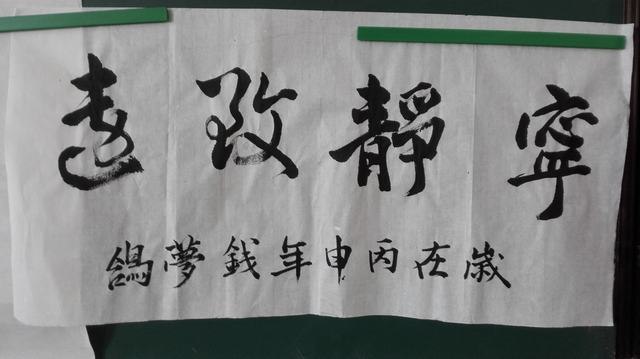 寧靜致遠
歲在丙申年錢夢鴿